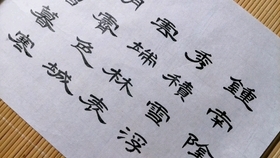 鍾南陰
秀積雪浮
雲端林表
明霽色城
暮寒